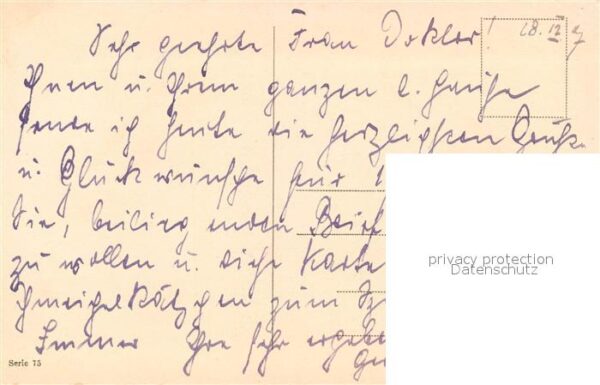 Sehr geehrte Frau Doktor! 28. 12
Ihnen u. Ihrem ganzen l. Hause
sende ich heute die herzlichsten Grüße
u. Glückwünsche für
Sie, beiliegenden Brief
zu wollen u. diese Karte
Schmeichelkätzchen zum
Immer Ihre sehr ergebe
Serie 75
privacy protection
Datenschutz